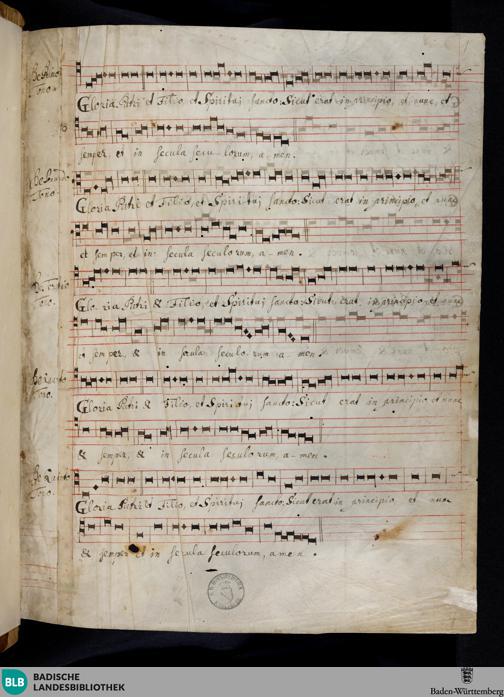 De Primo Tono.
Gloria Patri et Filio, et Spiritui sancto: Sicut erat in principio, et nunc, et
semper, et in secula seculorum, a-men.
De Secundo Tono.
Gloria Patri et Filio, et Spiritui sancto: Sicut erat in principio, et nunc
et semper, et in secula seculorum, a-men.
De Tertio Tono.
Gloria Patri & Filio, et Spiritui sancto: Sicut erat in principio et nunc
semper, & in secula seculorum a-men.
De Quarto Tono.
Gloria Patri & Filio, et Spiritui sancto: Sicut erat in principio et nunc
& semper, & in secula seculorum, a-men.
De Quinto Tono.
Gloria Patri et Filio, et Spiritui sancto: Sicut erat in principio et nunc
& semper et in secula seculorum, amen.
BLB BADISCHE
LANDESBIBLIOTHEK
Baden-Württemberg